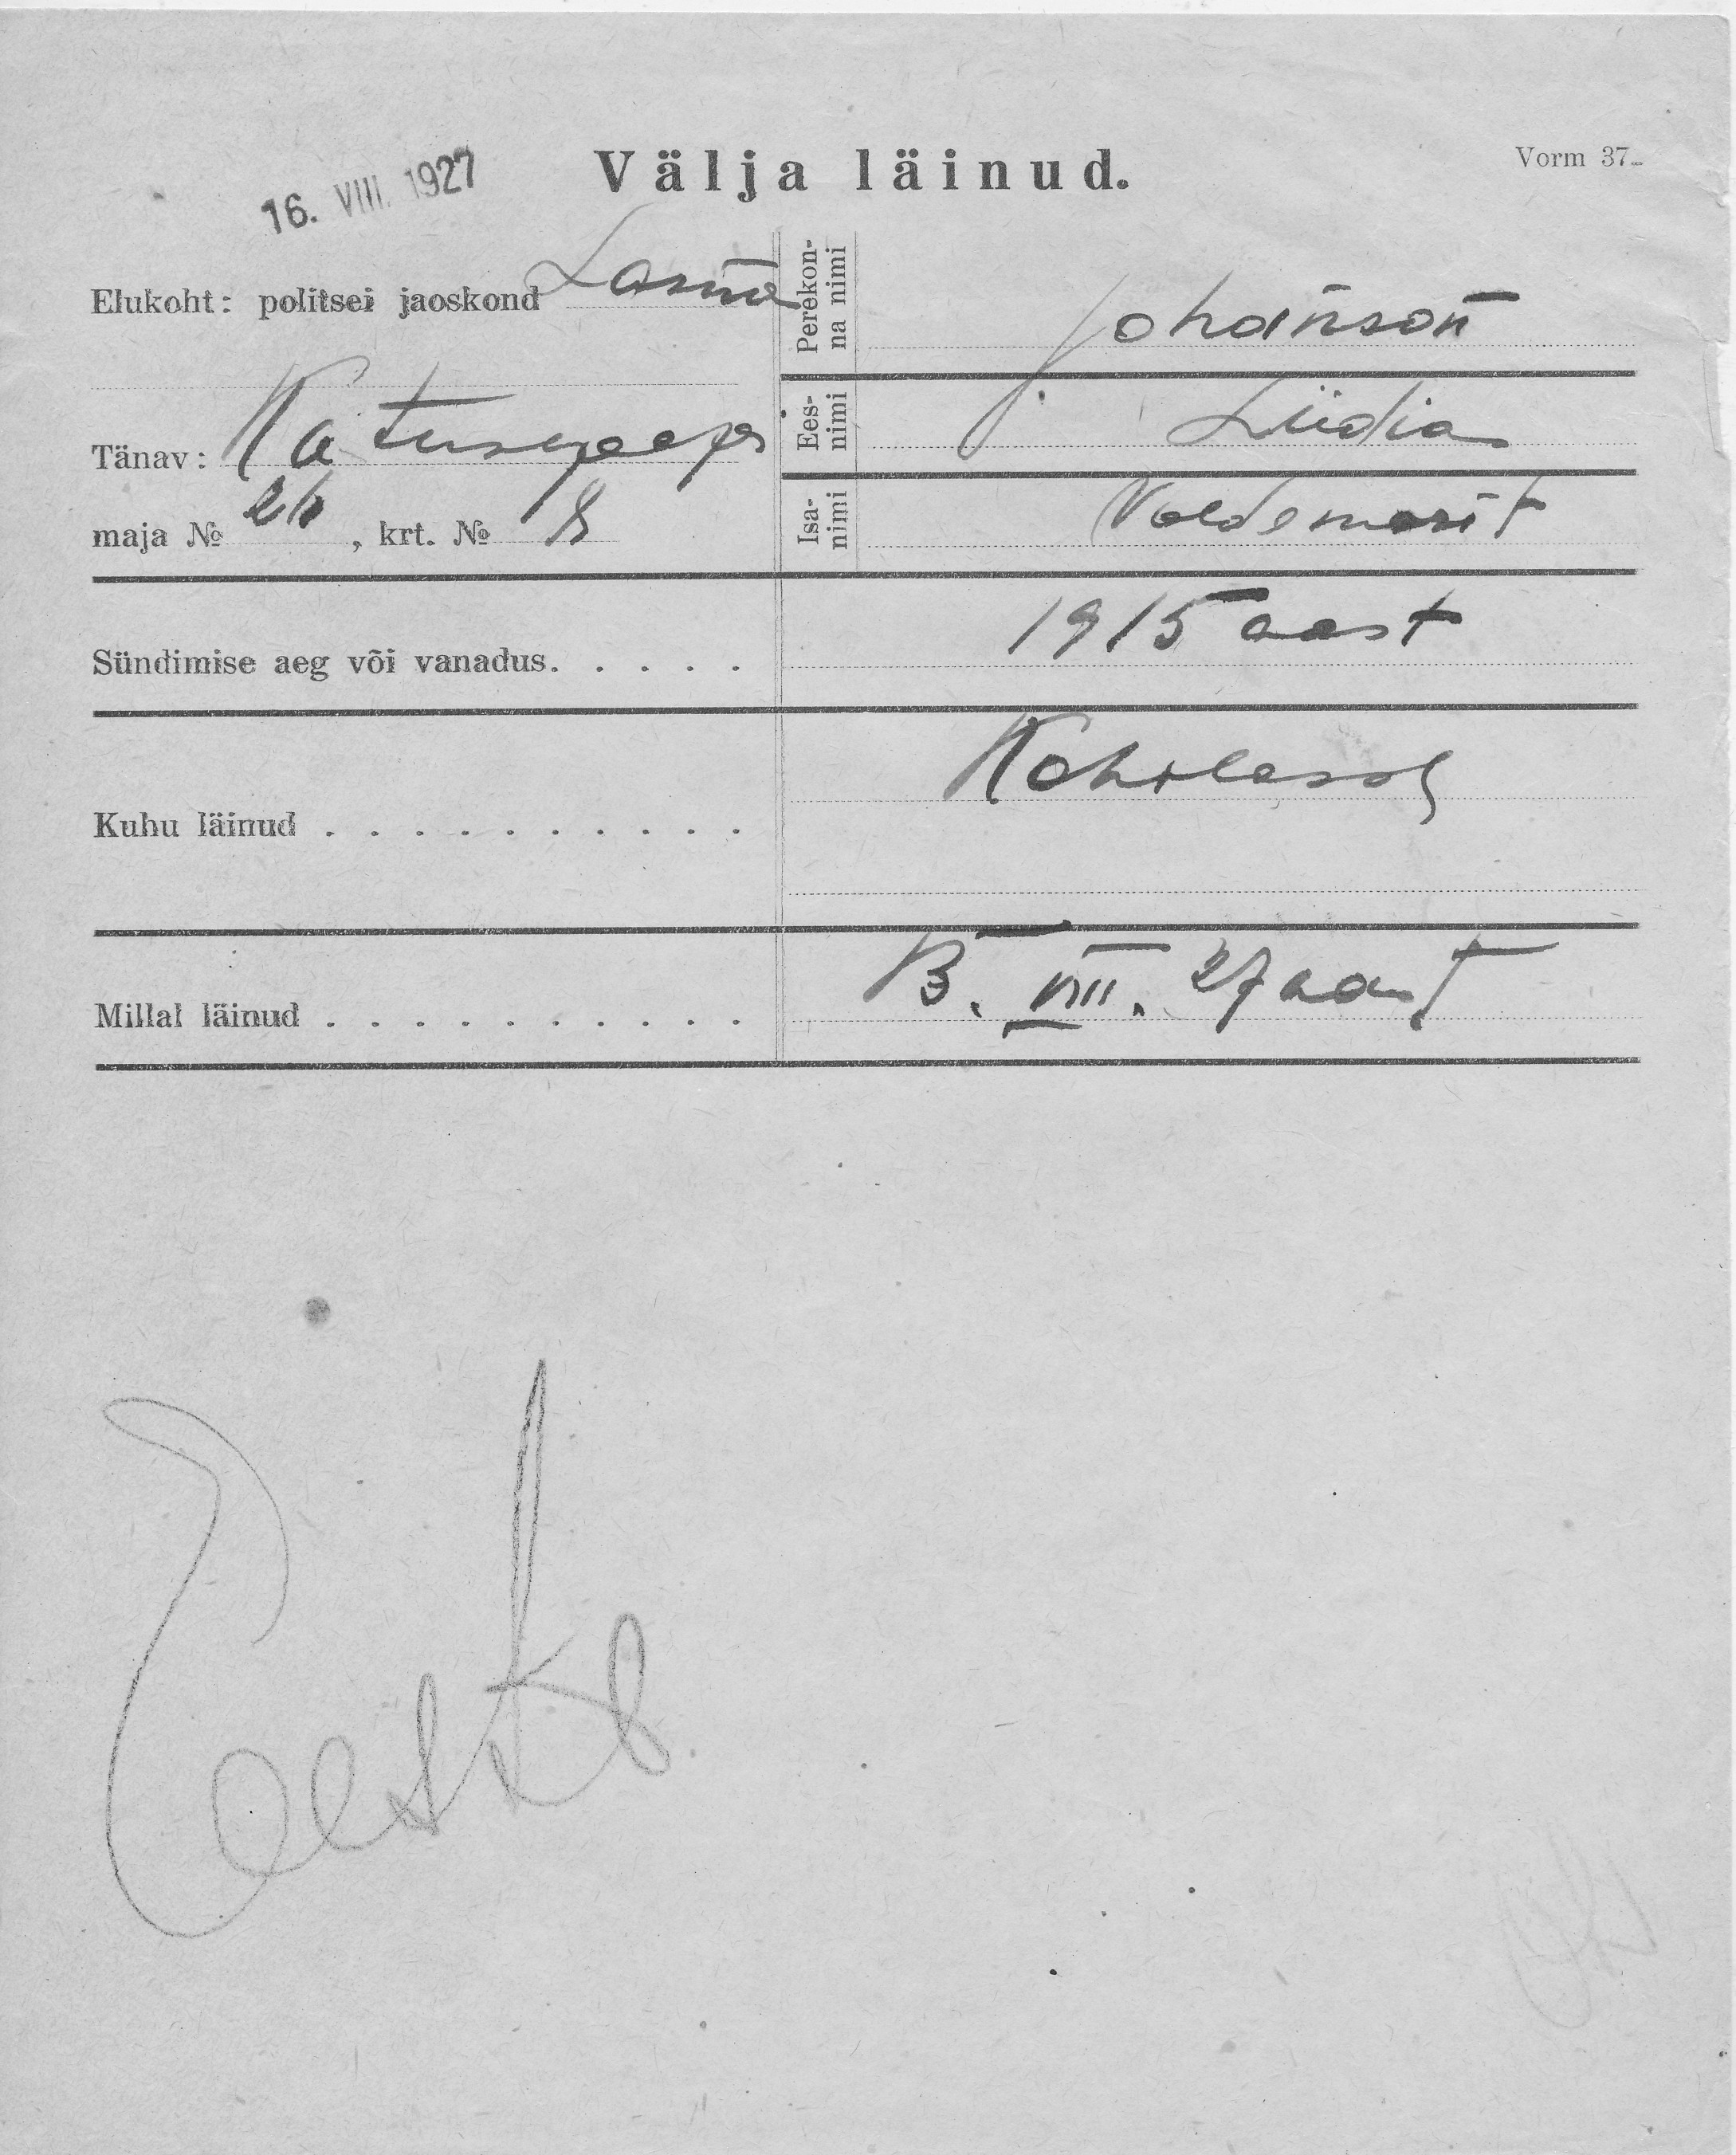 16. VIII. 1927
Välja läinud.
Vorm 37
Elukoht: politsei jaoskond Lasna
Perekonna nimi Johanson
Tänav: Katusepapi
Eesnimi Liidia
maja № 26, krt. № 8
Isanimi Voldemarit
Sündimise aeg või vanadus. . . . . 1915 aast
Kuhu läinud . . . . . . . . . .
Millal läinud . . . . . . . . . . VIII. 27 aast